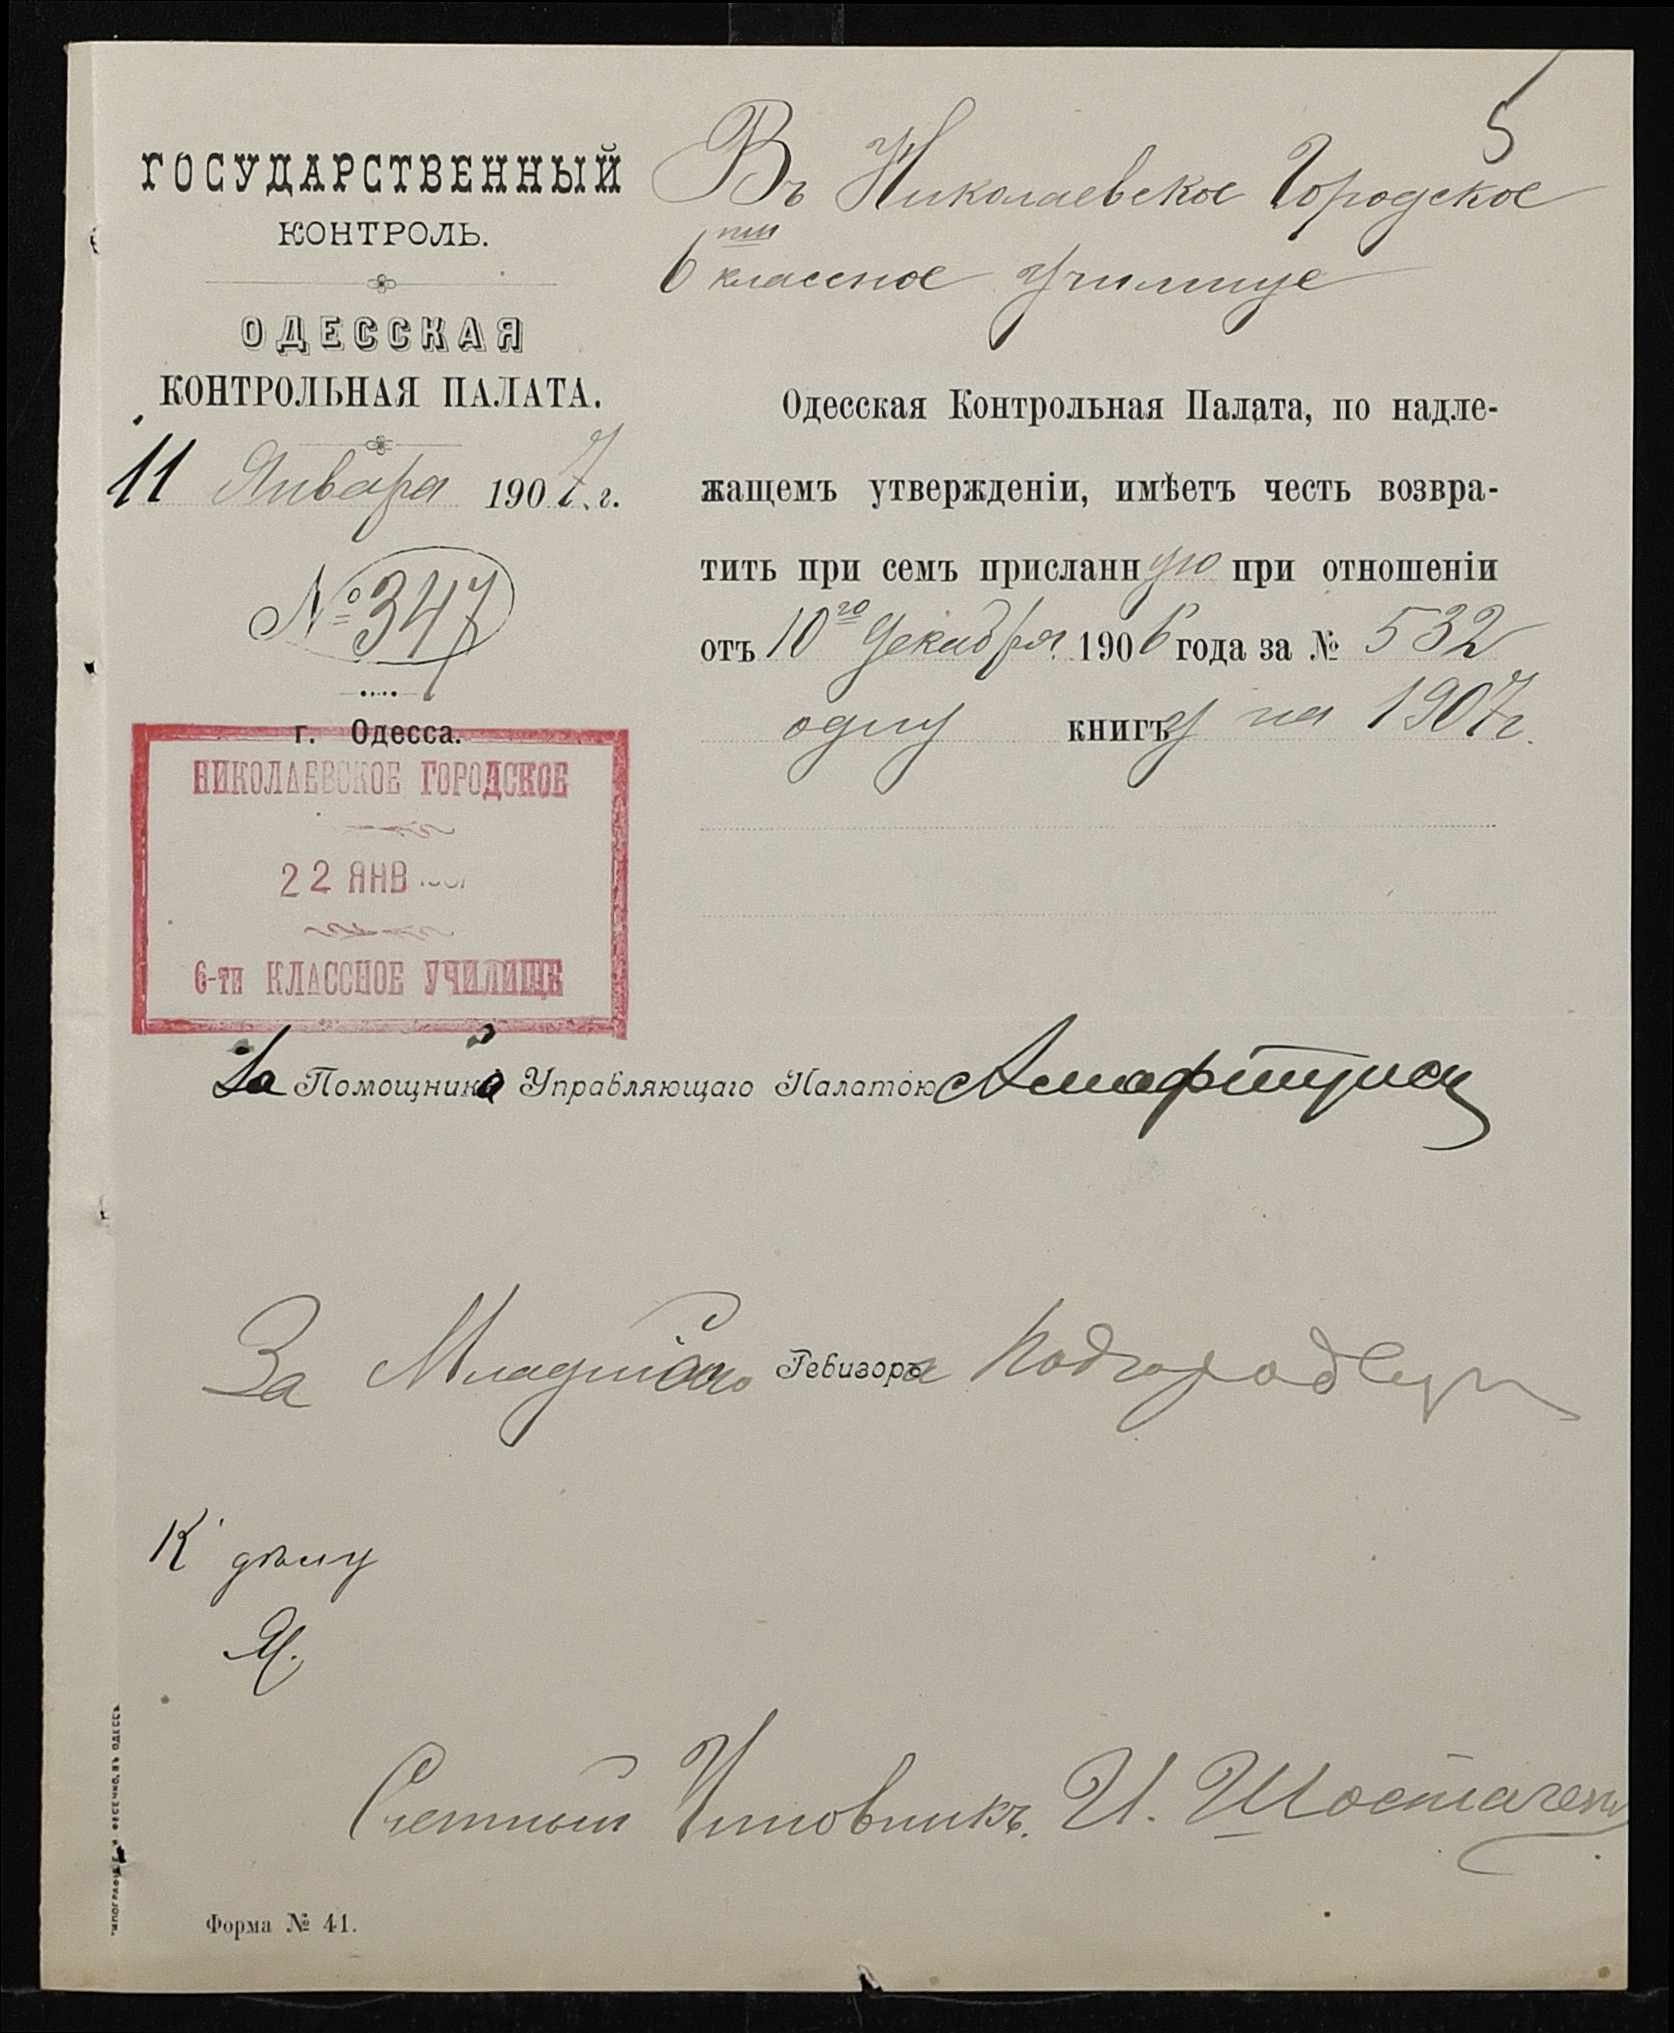 5
ГОСУДАРСТВЕННЫЙ
КОНТРОЛЬ.
ОДЕССКАЯ
КОНТРОЛЬНАЯ ПАЛАТА.
11 Января 1907 г.
№ 347
г. Одесса.
НИКОЛАЕВСКОЕ ГОРОДСКОЕ
22 ЯНВ 1907
6-ти КЛАССНОЕ УЧИЛИЩЕ
Въ Николаевское Городское
6ти классное училище
Одесская Контрольная Палата, по надле-
жащемъ утвержденіи, имѣетъ честь возвра-
тить при семъ присланную при отношеніи
отъ 10го Декабря 1906 года за № 532
одну книгу на 1907 г.
За Помощника Управляющаго Палатою
За Младшаго Ревизора
К дѣлу
Счетный Чиновникъ И.
Форма № 41.